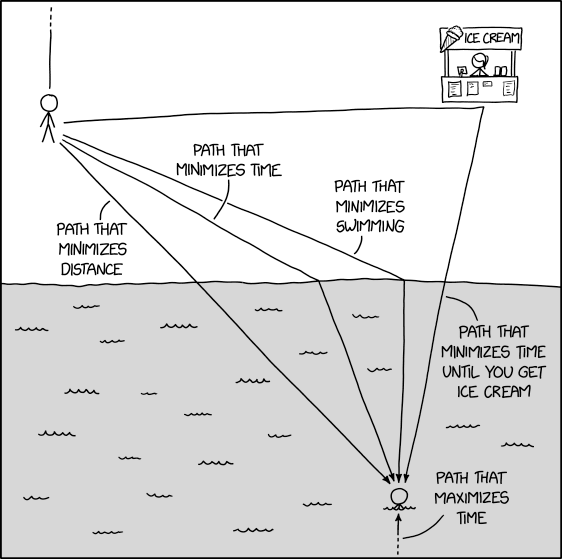 ICE CREAM
PATH THAT
MINIMIZES TIME
PATH THAT
MINIMIZES
SWIMMING
PATH THAT
MINIMIZES
DISTANCE
PATH THAT
MINIMIZES TIME
UNTIL YOU GET
ICE CREAM
PATH THAT
MAXIMIZES
TIME